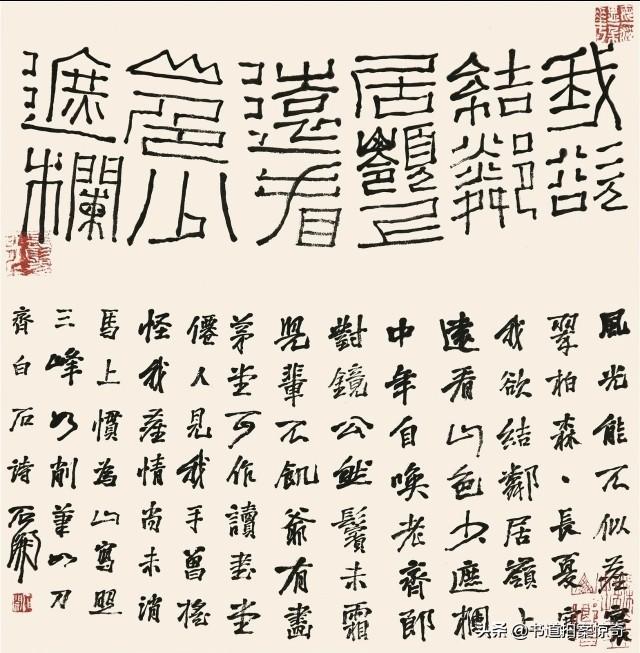 我欲
結鄰
居嶺上
遠看
山色少
遮欄
風光能不似
翠柏森、長夏寒
我欲結鄰居嶺上
遠看山色少遮欄
中年自喚老齊郎
對鏡公然鬢未霜
兒輩不飢爺有畫
茅堂可作讀書堂
僊人見我手曾搖
怪我塵情尚未消
馬上慣為山寫照
三峰如削筆如刀
齊白石詩 石開
头条 @书道拍案惊奇